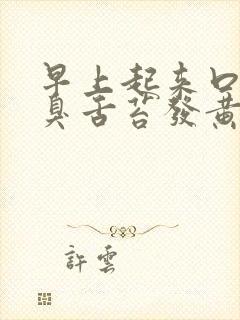 早上起来口
臭舌苔發黃
許雲